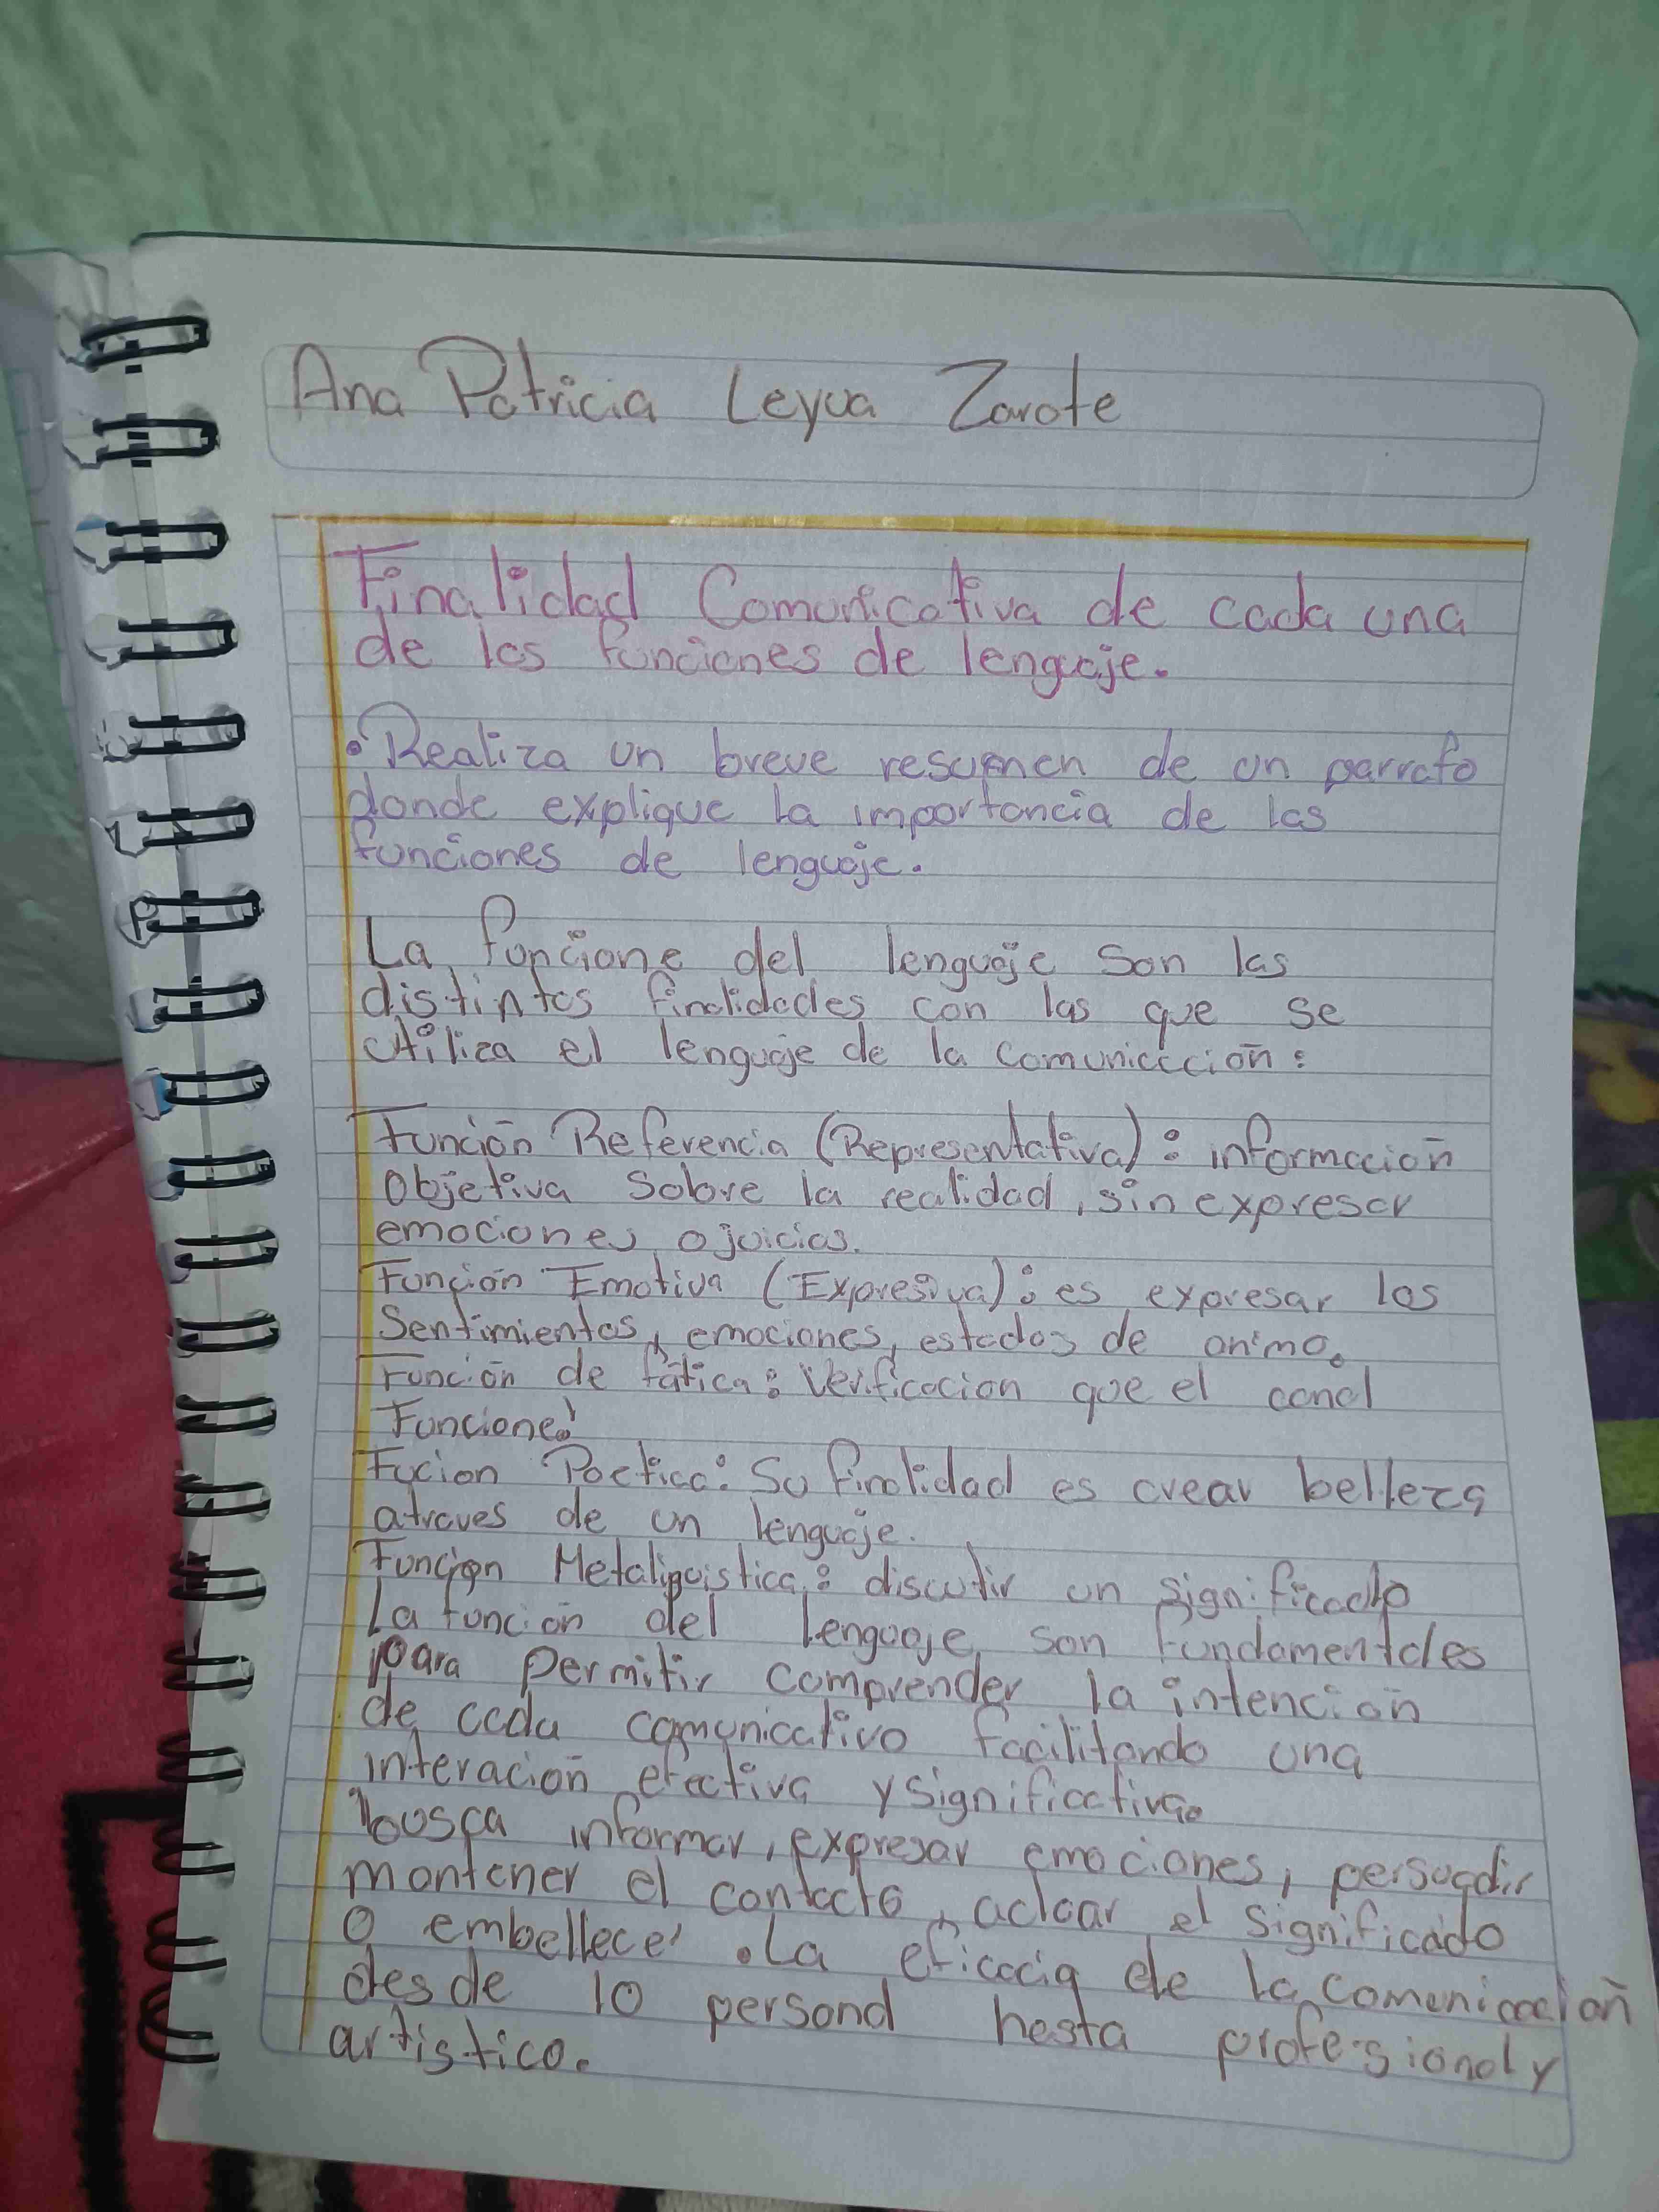 Ana Patricia Leyva Zarate
Finalidad Comunicativa de cada una
de las funciones de lenguaje.
• Realiza un breve resumen de un parrafo
donde explique la importancia de las
funciones de lenguaje.
La funcione del lenguaje son las
distintas finalidades con las que se
utiliza el lenguaje de la comunicación:
Función Referencia (Representativa): información
Objetiva sobre la realidad, sin expresar
emociones o juicios.
Función Emotiva (Expresiva): es expresar los
Sentimientos, emociones, estados de animo.
Función de fática: Verificacion que el canal
Funcione.
Fucion Poetica: Su finalidad es crear belleza
atraves de un lenguaje.
Funcion Metaliguistica: discutir un significado
La función del lenguaje son fundamentales
para permitir comprender la intención
de cada comunicativo facilitando una
interación efectiva y significativa.
busca informar, expresar emociones, persuadir
mantener el contacto, acloar el significado
O embellecer. La eficacia de la comunicación
desde lo personal hasta profesional y
artistico.